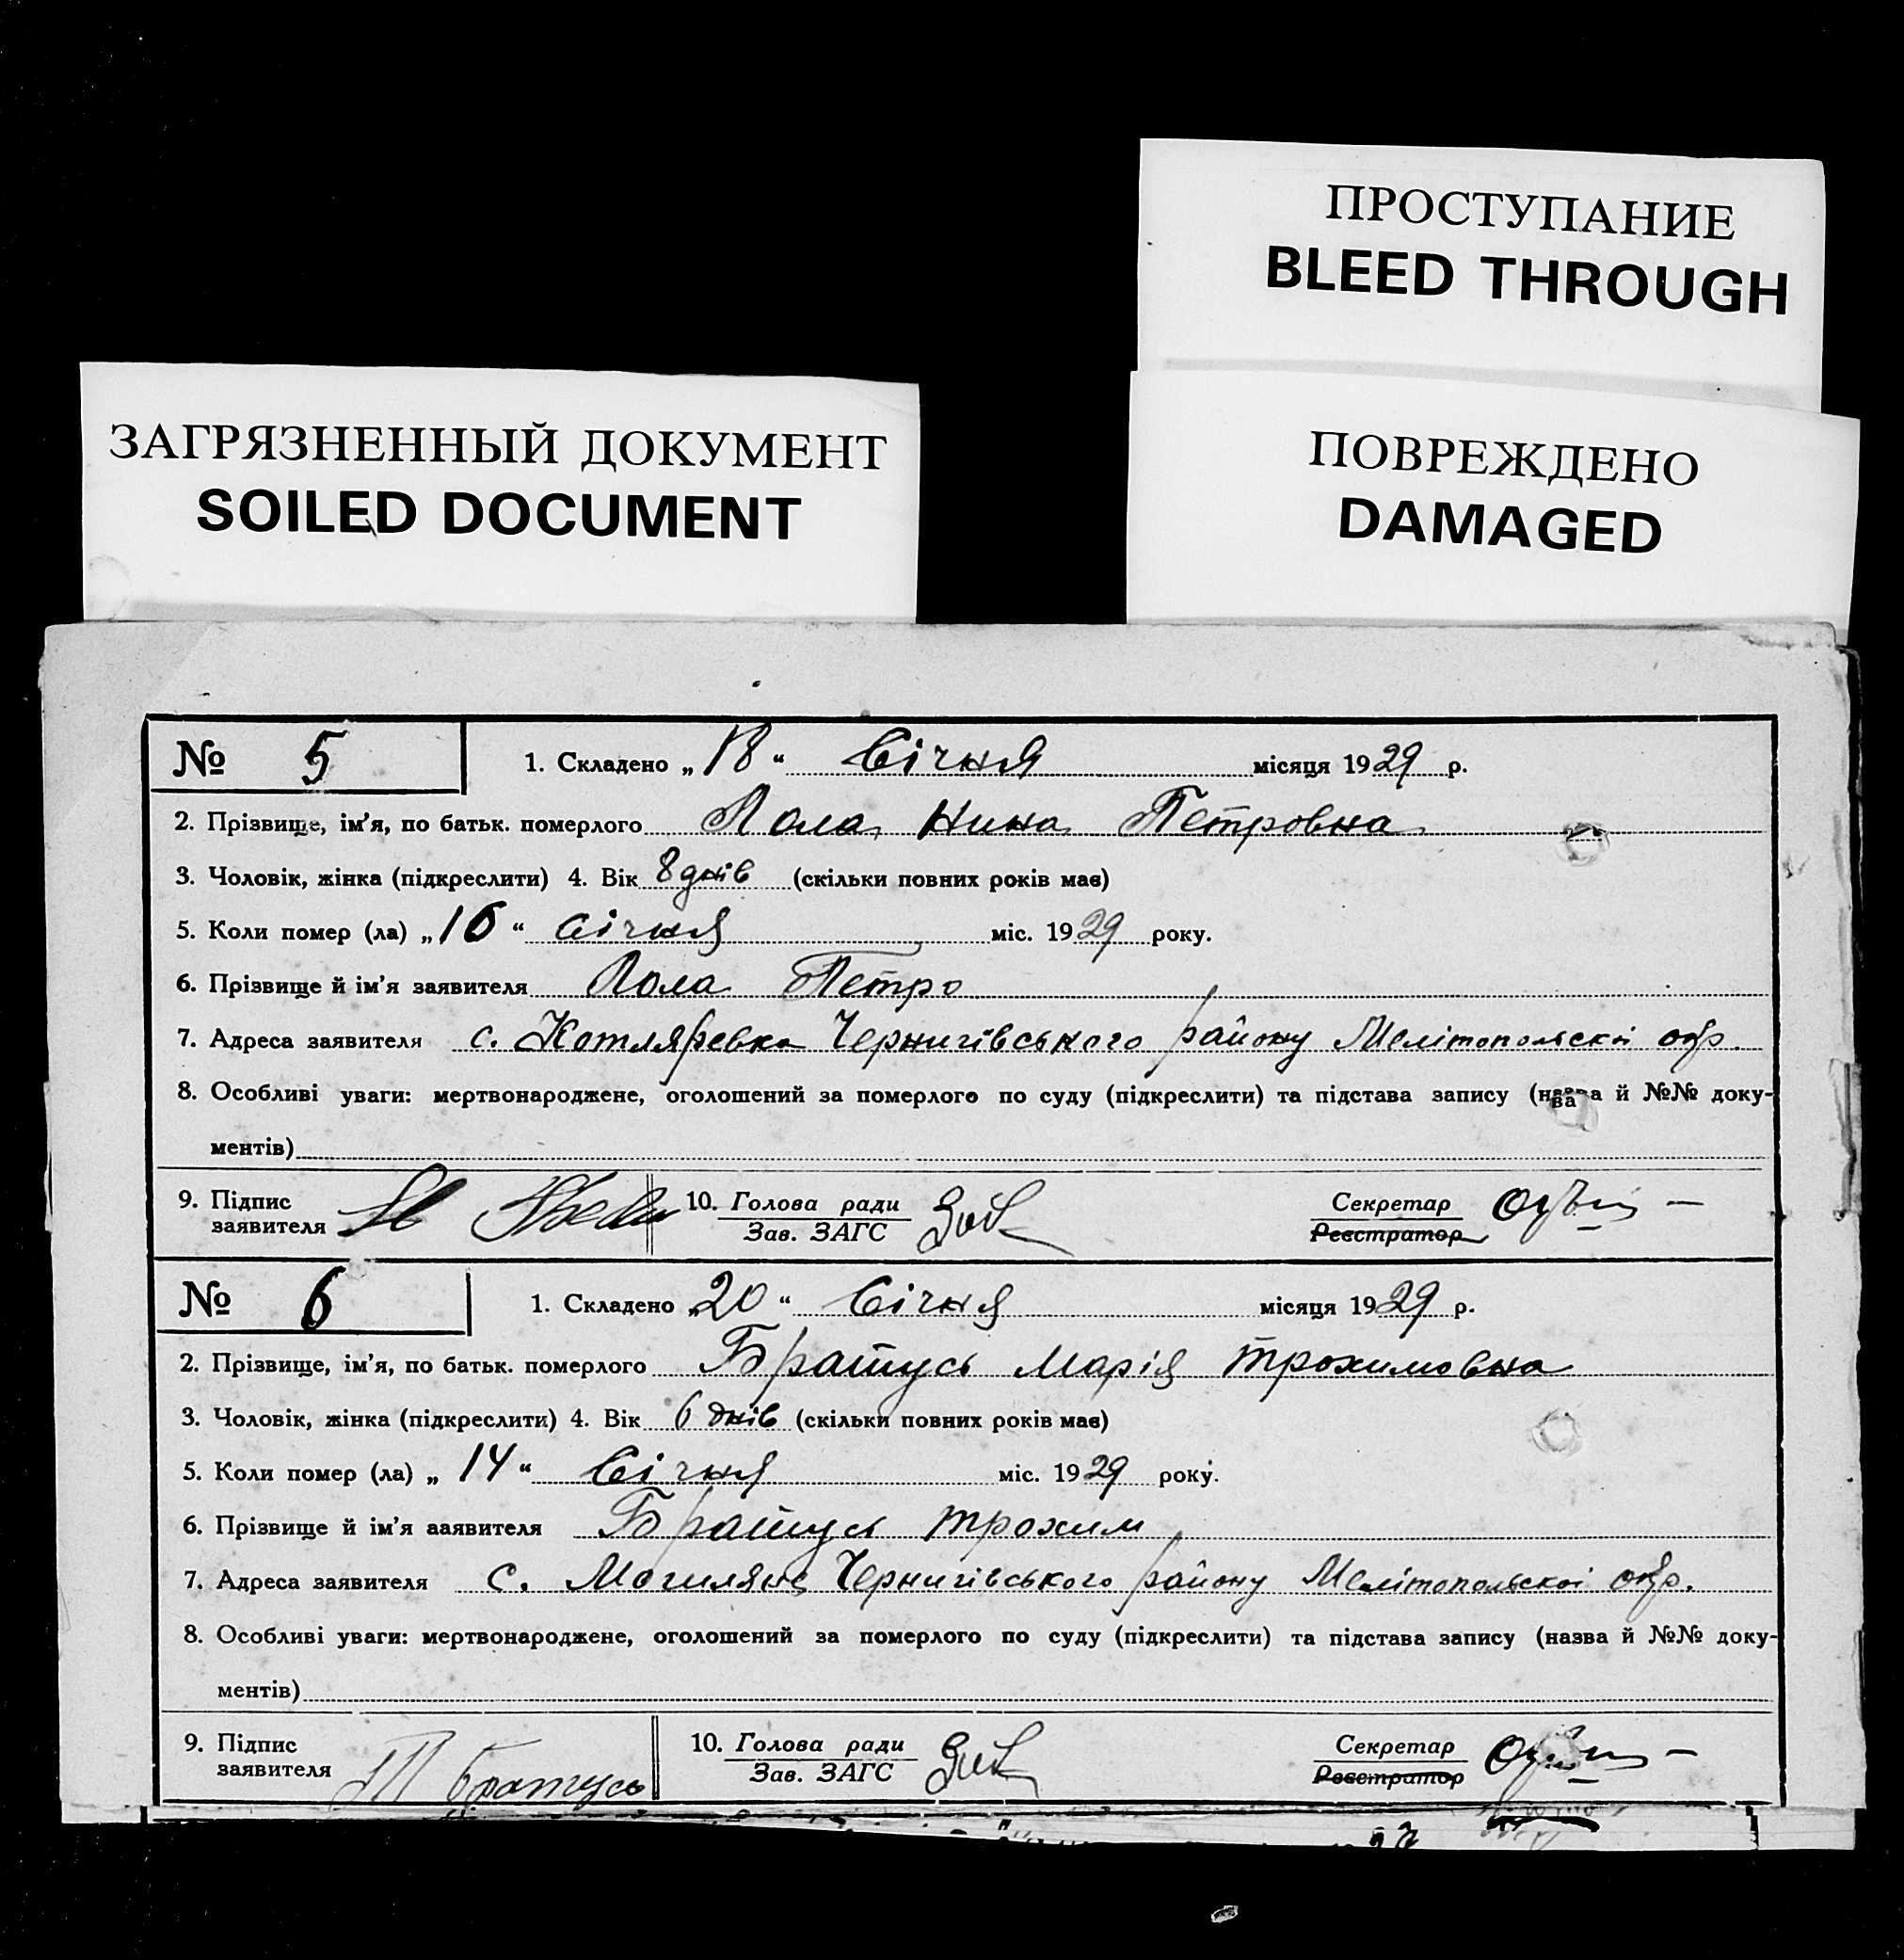 ПРОСТУПАНИЕ
BLEED THROUGH
ЗАГРЯЗНЕННЫЙ ДОКУМЕНТ
SOILED DOCUMENT
ПОВРЕЖДЕНО
DAMAGED
№ 5 1. Складено „18“ Січня місяця 1929 р.
2. Прізвище, ім’я, по батьк. померлого Лола Нина Петровна
3. Чоловік, жінка (підкреслити) 4. Вік 8 днів (скільки повних років має)
5. Коли помер (ла) „16“ Січня міс. 1929 року.
6. Прізвище й ім’я заявителя Лола Петро
7. Адреса заявителя с. Котляревка Чернигівського району Мелітопольскоі окр.
8. Особливі уваги: мертвонароджене, оголошений за померлого по суду (підкреслити) та підстава запису (назва й №№ доку-
ментів)
9. Підпис
заявителя
10. Голова ради
Зав. ЗАГС
Секретар
Реєстратор
№ 6 1. Складено „20“ Січня місяця 1929 р.
2. Прізвище, ім’я, по батьк. померлого Братусь Марія Трохимовна
3. Чоловік, жінка (підкреслити) 4. Вік 6 днів (скільки повних років має)
5. Коли помер (ла) „14“ Січня міс. 1929 року.
6. Прізвище й ім’я заявителя Братусь Трохим
7. Адреса заявителя с. Могиляне Чернигівського району Мелітопольскоі окр.
8. Особливі уваги: мертвонароджене, оголошений за померлого по суду (підкреслити) та підстава запису (назва й №№ доку-
ментів)
9. Підпис
заявителя Т Братусь
10. Голова ради
Зав. ЗАГС
Секретар
Реєстратор